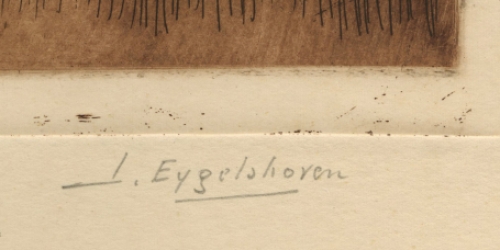 I. Eygelshoven